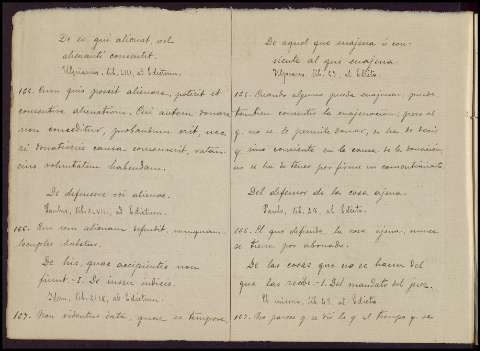 De eo, qui alienat, vel
alienanti consentit.
Ulpianus, lib.     ad Edictum.
165. Cum quis possit alienare, poterit et
consentire alienationi. Cui autem donare
non conceditur, probandum erit, nec
si donationis causa consenserit, ratam
eius voluntatem habendam.
De defensore rei alienae.
Paulus, lib.     ad Edictum.
166. Qui rem alienam defendit, nunquam
locuples habetur.
De his, quae accipientis non
fiunt.-1. De iussu iudicis.
Idem, lib.     ad Edictum.
167. Non videntur data, quae eo tempore,
De aquel que enajena ó con-
siente al que enajena
Ulpiano, lib.     al Edicto.
165. Cuando alguno pueda enajenar, puede
tambien consentir la enajenacion; pero al
q. no se le permite donar, se ha de decir
q. aun consiente en la causa de la donación,
no se ha de tener por firme su consentimiento.
Del defensor de la cosa ajena.
Paulo, lib.     al Edicto.
166. El que defiende la cosa ajena, nunca
se tiene por abonado.
De las cosas que no se hacen del
que las recibe.-1. Del mandato del juez.
lib.     al Edicto
167. No parece q. se dió lo q. al tiempo q. se